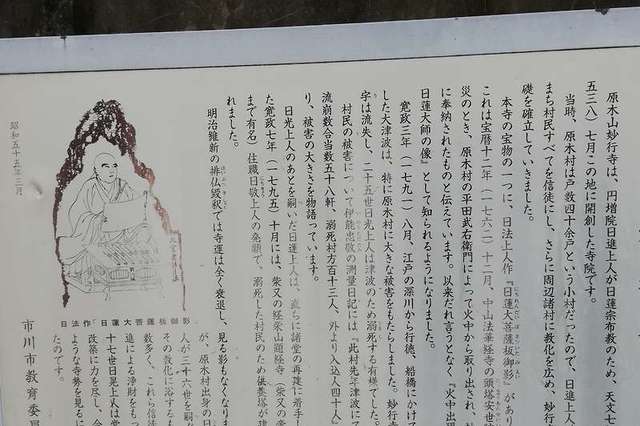 原木山妙行寺は、円増院日進上人が日蓮宗布教のため、天文七
五三八）七月この地に開創した寺院です。
当時、原木村は戸数四十余戸という小村だったので、日進上人
まち村民すべてを信徒にし、さらに周辺諸村に教化を広め、妙行
礎を確立していきました。
本寺の宝物の一つに、日法上人作『日蓮大菩薩板御影』があり
これは宝暦十二年（一七六二）十二月、中山法華経寺の頭塔安世
災のとき、原木村の平田武右衛門によって火中から取り出され、
に奉納されたものと伝えています。以来だれ言うとなく『火中出現
日蓮大師の像』として知られるようになりました。
寛政三年（一七九一）八月、江戸の深川から行徳、船橋にかけて
した大津波は、特に原木村に大きな被害をもたらしました。妙行寺
字は流失し、二十五世日光上人は津波のため溺死する有様でした。
村民の被害について伊能忠敬の測量日記には『此村先年津波にて
流崩数合当数五十八軒、溺死村方百十三人、外より入込人四十人
り、被害の大きさを物語っています。
日光上人のあとを嗣いだ日運上人は、直ちに諸堂の再建に着手し
た寛政七年（一七九五）十月には、柴又の経栄山題経寺（柴又の帝
まで有名）住職日敬上人の発願で、溺死した村民のため供養塔が建
れました。
明治維新の排仏毀釈では寺運は全く衰退し、見る影もなくなりま
が、原木村出身の日
人が二十六世を嗣
その教化に浴するも
数多く、これら信徒
進による浄財をもっ
十七世日晃上人は堂
改築に力を尽し、今
ような寺勢を見るに
たのです。
日法作「日蓮大菩薩板御影」
昭和五十五年三月
市川市教育委員